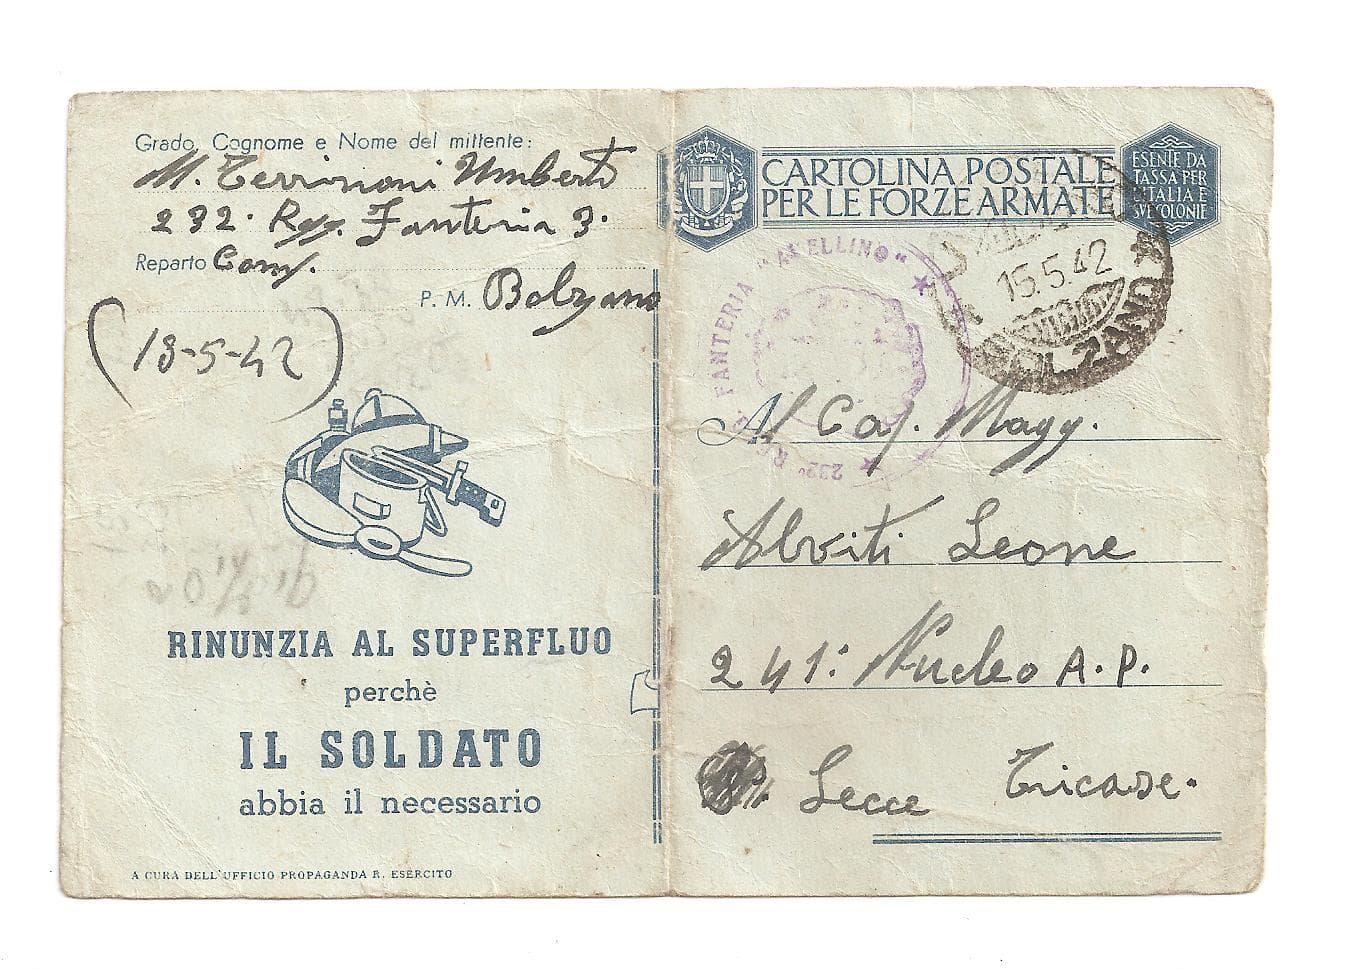 Grado, Cognome e Nome del mittente:
M. Terrinoni Umberto
232. Rgg. Fanteria 3.
Reparto Comp.
P. M. Bolzano
(13-5-42)
RINUNZIA AL SUPERFLUO
perchè
IL SOLDATO
abbia il necessario
A CURA DELL'UFFICIO PROPAGANDA R. ESERCITO
CARTOLINA POSTALE
PER LE FORZE ARMATE
ESENTE DA
TASSA PER
L'ITALIA E
SVE COLONIE
15.5.42
BOLZANO
232° REGG. FANTERIA "AVELLINO"
Al Cap. Magg.
Alviti Leone
241: Nucleo A.P.
Lecce Tricase.